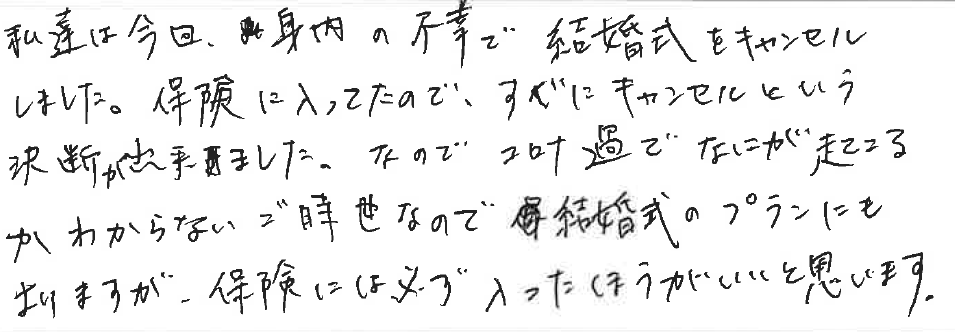 私達は今回、身内の不幸で結婚式をキャンセル
しました。保険に入ってたので、すぐにキャンセルという
決断が出来ました。なので コロナ過でなにが起こる
かわからないご時世なので 結婚式のプランにも
よりますが、保険には必ず入ったほうがいいと思います。